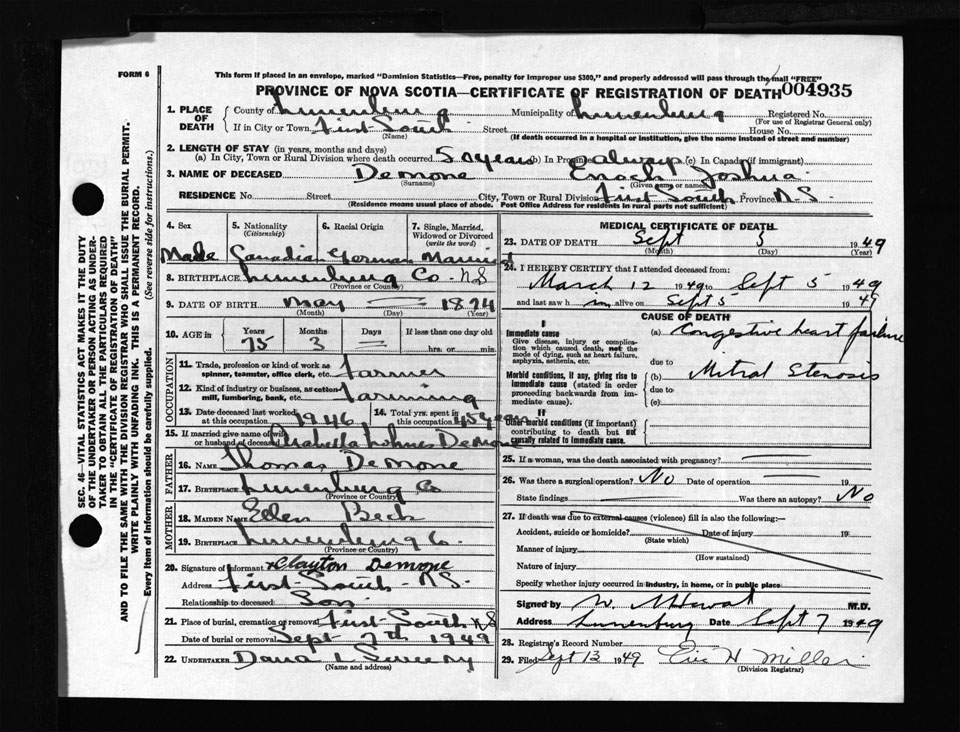 FORM 6
This form if placed in an envelope, marked "Dominion Statistics—Free, penalty for improper use $300," and properly addressed will pass through the mail "FREE"
PROVINCE OF NOVA SCOTIA—CERTIFICATE OF REGISTRATION OF DEATH 004935
1. PLACE OF DEATH County of Lunenburg Municipality of Lunenburg Registered No.
(For use of Registrar General only)
If in City or Town First South Street House No.
(Name) (If death occurred in a hospital or institution, give the name instead of street and number)
2. LENGTH OF STAY (in years, months and days)
(a) In City, Town or Rural Division where death occurred 50 years (b) In Province always (c) In Canada (if immigrant)
3. NAME OF DECEASED Demone Enoch Joshua
(Surname) (Given name or names)
RESIDENCE No. Street City, Town or Rural Division First South Province N.S.
(Residence means usual place of abode. Post Office Address for residents in rural parts not sufficient)
4. Sex 5. Nationality (Citizenship) 6. Racial Origin 7. Single, Married, Widowed or Divorced (write the word)
Male Canadia German Married
8. BIRTHPLACE Lunenburg Co - N S
(Province or Country)
9. DATE OF BIRTH May 1874
(Month) (Day) (Year)
10. AGE in Years Months Days If less than one day old
75 3 hrs. or min.
OCCUPATION
11. Trade, profession or kind of work as spinner, teamster, office clerk, etc. farmer
12. Kind of industry or business, as cotton mill, lumbering, bank, etc. farming
13. Date deceased last worked at this occupation 1946 14. Total yrs. spent in this occupation 45 years
15. If married give name of wife or husband of deceased Arabella Lohnes Demone
FATHER
16. NAME Thomas Demone
17. Birthplace Lunenburg Co
(Province or Country)
MOTHER
18. MAIDEN NAME Ellen Beck
19. Birthplace Lunenburg Co.
(Province or Country)
20. Signature of informant Clayton Demone
Address First South - N.S.
Relationship to deceased Son
21. Place of burial, cremation or removal First South N S
Date of burial or removal Sept 7th 1949
22. UNDERTAKER Dana L Sweeny
(Name and address)
MEDICAL CERTIFICATE OF DEATH
23. DATE OF DEATH Sept 5 1949
(Month) (Day) (Year)
24. I HEREBY CERTIFY that I attended deceased from:
March 12 1949 to Sept 5 1949
and last saw him alive on Sept 5 1949
CAUSE OF DEATH
I
Immediate cause
Give disease, injury or complication which caused death, not the mode of dying, such as heart failure, asphyxia, asthenia, etc.
(a) Congestive heart failure
due to
Morbid conditions, if any, giving rise to immediate cause (stated in order proceeding backwards from immediate cause).
(b) Mitral Stenosis
due to
(c)
II
Other morbid conditions (if important) contributing to death but not causally related to immediate cause.
25. If a woman, was the death associated with pregnancy?
26. Was there a surgical operation? No Date of operation 19
State findings Was there an autopsy? No
27. If death was due to external causes (violence) fill in also the following:—
Accident, suicide or homicide? Date of injury 19
(State which)
Manner of injury
(How sustained)
Nature of injury
Specify whether injury occurred in industry, in home, or in public place
Signed by M.D.
Address Lunenburg Date Sept 7 1949
28. Registrar's Record Number
29. Filed Sept 13 1949 Eric H Miller
(Division Registrar)
SEC. 46—VITAL STATISTICS ACT MAKES IT THE DUTY
OF THE UNDERTAKER OR PERSON ACTING AS UNDER-
TAKER TO OBTAIN ALL THE PARTICULARS REQUIRED
IN THE "CERTIFICATE OF REGISTRATION OF DEATH"
AND TO FILE THE SAME WITH THE DIVISION REGISTRAR WHO SHALL ISSUE THE BURIAL PERMIT.
WRITE PLAINLY WITH UNFADING INK. THIS IS A PERMANENT RECORD.
Every item of information should be carefully supplied. (See reverse side for instructions.)